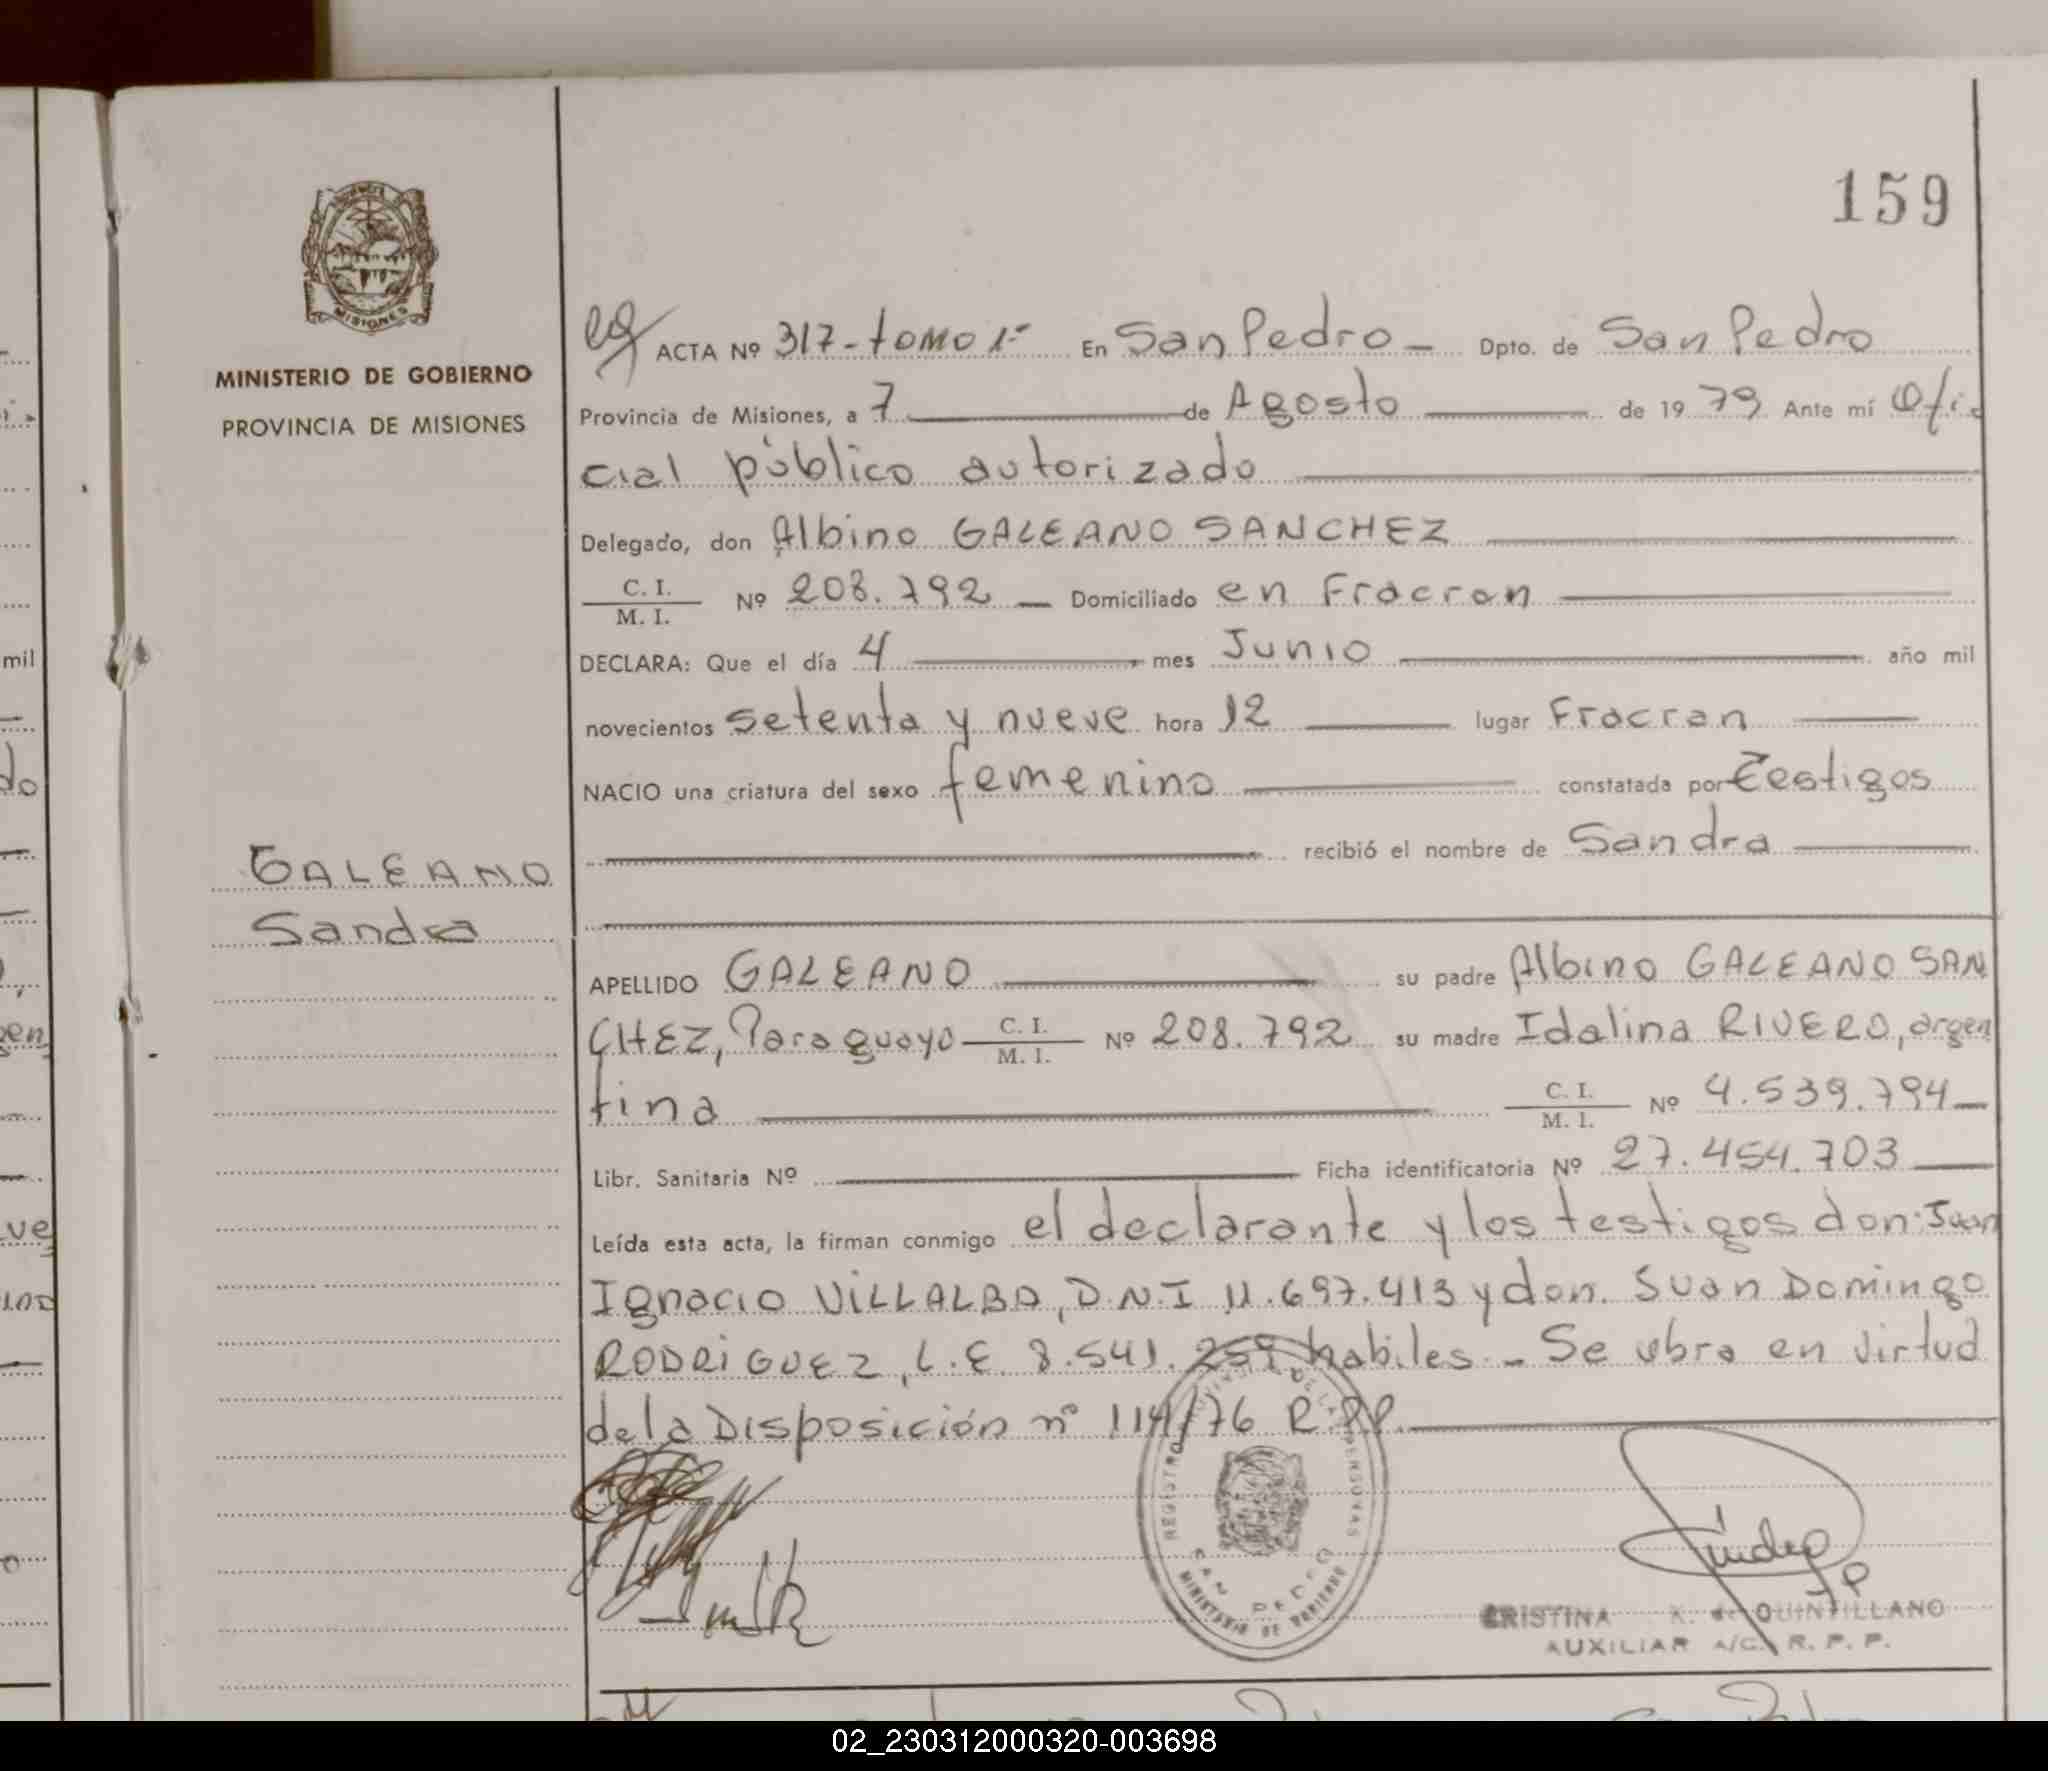 159
MISIONES
MINISTERIO DE GOBIERNO
PROVINCIA DE MISIONES
GALEANO
Sandra
ACTA Nº 317-tomo 1º En San Pedro Dpto. de San Pedro
Provincia de Misiones, a 7 de Agosto de 19 79 Ante mí Ofi
cial público autorizado
Delegado, don Albino GALEANO SANCHEZ
C. I.
M. I. Nº 208.792 Domiciliado en Fracran
DECLARA: Que el día 4 mes Junio año mil
novecientos setenta y nueve hora 12 lugar Fracran
NACIO una criatura del sexo femenino constatada por Testigos
recibió el nombre de Sandra
APELLIDO GALEANO su padre Albino GALEANO SAN
CHEZ, Paraguayo C. I. M. I. Nº 208.792 su madre Idalina RIVERO, argen
tina C. I. M. I. Nº 4.539.794
Libr. Sanitaria Nº Ficha identificatoria Nº 27.454.703
Leída esta acta, la firman conmigo el declarante y los testigos don: Juan
Ignacio VILLALBA, D.N.I 11.697.413 y don. Juan Domingo
RODRIGUEZ, L.E 8.541.259 habiles. - Se obra en virtud
de la Disposición nº 114/76 R.P.P.
REGISTRO PROVINCIAL DE LAS PERSONAS
SAN PEDRO
MINISTERIO DE GOBIERNO
CRISTINA K. de QUINTILLANO
AUXILIAR A/C. R. P. P.
02_230312000320-003698